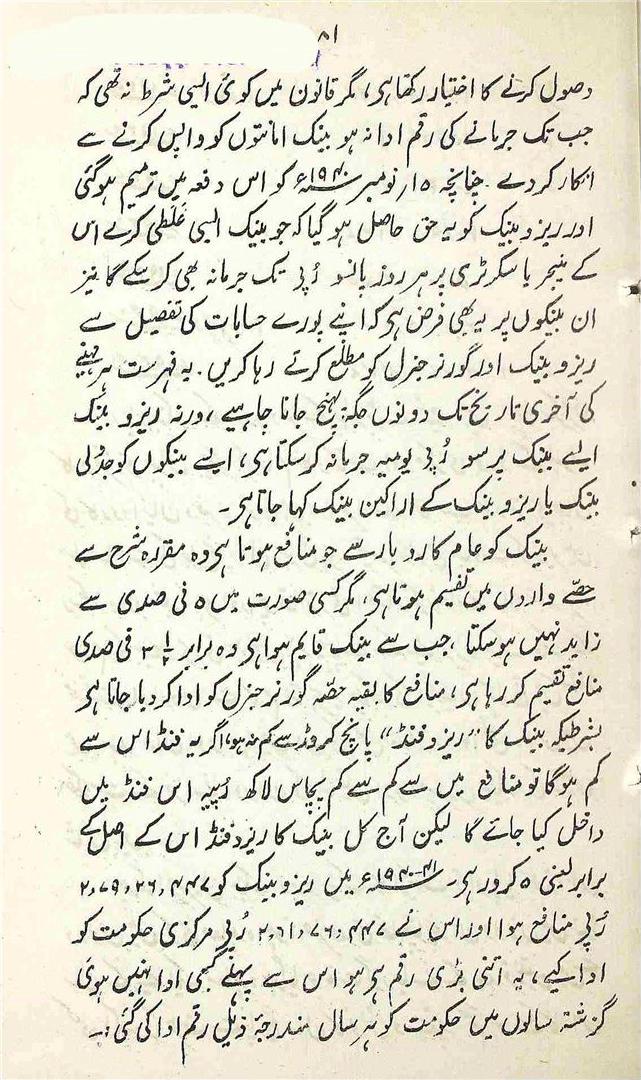 ۸۱
وصول کرنے کا اختیار رکھتا ہی، مگر قانون میں کوئی ایسی شرط نہ تھی کہ
جب تک جرمانے کی رقم ادا نہ ہو بینک امانتوں کو واپس کرنے سے
انکار کر دے۔ چنانچہ ۱۵؍ نومبر ۱۹۴۰ء کو اس دفعہ میں ترمیم ہوگئی
اور ریزرو بینک کو یہ حق حاصل ہو گیا کہ جو بینک ایسی غلطی کرے اس
کے منیجر یا سکرٹری پر ہر روز پانسو رُپی تک جرمانہ بھی کر سکے گا نیز
ان بینکوں پر یہ بھی فرض ہی کہ اپنے پورے حسابات کی تفصیل سے
ریزو بینک اور گورنر جنرل کو مطلع کرتے رہا کریں۔ یہ فہرست ہر مہینے
کی آخری تاریخ تک دونوں جگہ پہنچ جانا چاہیے، ورنہ ریزو بینک
ایسے بینک پر سو رُپی یومیہ جرمانہ کر سکتا ہی، ایسے بینکوں کو جدولی
بینک یا ریزو بینک کے اراکین بینک کہا جاتا ہی۔
بینک کو عام کاروبار سے جو منافع ہوتا ہی وہ مقررہ شرح سے
حصّے داروں میں تقسیم ہوتا ہی، مگر کسی صورت میں ۵ فی صدی سے
زاید نہیں ہو سکتا، جب سے بینک قایم ہوا ہی وہ برابر ۳ ۱/۲ فی صدی
منافع تقسیم کر رہا ہی، منافع کا بقیہ حصّہ گورنر جنرل کو ادا کر دیا جاتا ہی
بشرطیکہ بینک کا "ریزو فنڈ" پانچ کروڑ سے کم نہ ہو، اگر یہ فنڈ اس سے
کم ہوگا تو منافع میں سے کم سے کم پچاس لاکھ رُپیہ اس فنڈ میں
داخل کیا جائے گا لیکن آج کل بینک کا ریزو فنڈ اس کے اصل کے
برابر یعنی ۵ کرور ہی۔ ۴۱-۱۹۴۰ء میں ریزو بینک کو ۲,۷۹,۲۶,۴۴۷
رُپی منافع ہوا اور اس نے ۲,۶۱,۷۶,۴۴۷ رُپی مرکزی حکومت کو
ادا کیے، یہ اتنی بڑی رقم ہی جو اس سے پہلے کبھی ادا نہیں ہوئی
گزشتہ سالوں میں حکومت کو ہر سال مندرجۂ ذیل رقم ادا کی گئی:۔